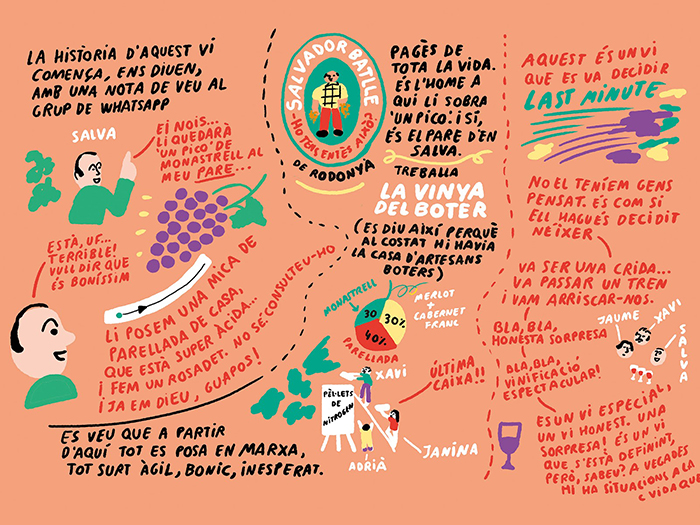 LA HISTÒRIA D'AQUEST VI
COMENÇA, ENS DIUEN,
AMB UNA NOTA DE VEU AL
GRUP DE WHATSAPP
SALVA
EI NOIS...
LI QUEDARÀ
'UN PICO' DE
MONASTRELL AL
MEU PARE...
ESTÀ, UF...
TERRIBLE!
VULL DIR QUE
ÉS BONÍSSIM
LI POSEM UNA MICA DE
PARELLADA DE CASA,
QUE ESTÀ SUPER ÀCIDA...
I FEM UN ROSADET. NO SÉ. CONSULTEU-HO
I JA EM DIEU, GUAPOS!
ES VEU QUE A PARTIR
D'AQUÍ TOT ES POSA EN MARXA,
TOT SURT ÀGIL, BONIC, INESPERAT.
SALVADOR BATLLE
HO TENS ENTÈS AIXÒ?
DE RODONYÀ
PAGÈS DE
TOTA LA VIDA.
ÉS L'HOME A
QUI LI SOBRA
'UN PICO'. I SÍ,
ÉS EL PARE D'EN
SALVA.
TREBALLA
LA VINYA
DEL BOTER
(ES DIU AIXÍ PERQUÈ
AL COSTAT HI HAVIA
LA CASA D'ARTESANS
BOTERS)
MONASTRELL
30
30%
40%
MERLOT
+
CABERNET
FRANC
PARELLADA
XAVI
PÈL·LETS
DE
NITROGEN
ÚLTIMA
CAIXA!!
ADRIÀ
JANINA
AQUEST ÉS UN VI
QUE ES VA DECIDIR
LAST MINUTE
NO EL TENÍEM GENS
PENSAT. ÉS COM SI
ELL HAGUÉS DECIDIT
NÉIXER
VA SER UNA CRIDA...
VA PASSAR UN TREN
I VAM ARRISCAR-NOS.
BLA, BLA,
HONESTA SORPRESA
BLA, BLA,
VINIFICACIÓ
ESPECTACULAR!
JAUME
XAVI
SALVA
ÉS UN VI ESPECIAL,
UN VI HONEST. UNA
SORPRESA! ÉS UN VI
QUE S'ESTÀ DEFININT,
PERÒ, SABEU? A VEGADES
HI HA SITUACIONS A LA
VIDA QUE